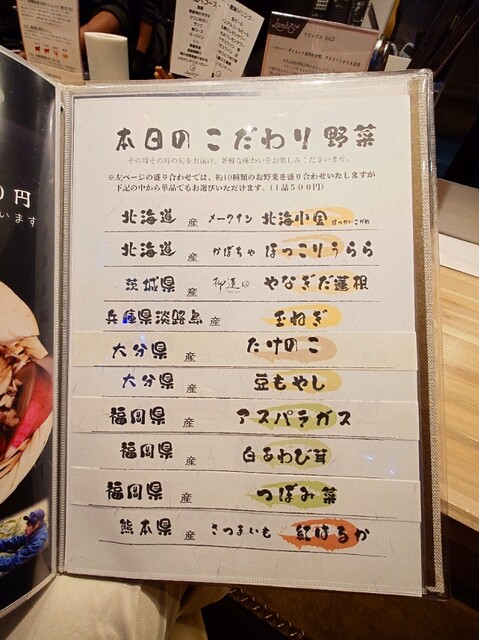 本日のこだわり野菜
その時その時の旬をお届け、新鮮な味わいをお楽しみくださいませ。
※左ページの盛り合わせでは、約10種類のお野菜を盛り合わせいたしますが
下記の中から単品でもお選びいただけます。(1品500円)
北海道 産 メークイン 北海小金 ほっかいこがね
北海道 産 かぼちゃ ほっこりうらら
茨城県 産 柳蓮田 やなぎだ蓮根
兵庫県淡路島 産 玉ねぎ
大分県 産 たけのこ
大分県 産 豆もやし
福岡県 産 アスパラガス
福岡県 産 白あわび茸
福岡県 産 つぼみ菜
熊本県 産 さつまいも 紅はるか
0円
います